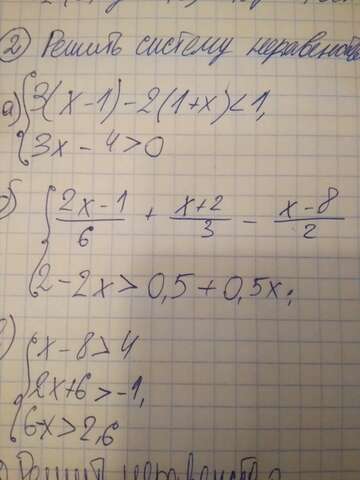 ② Решить систему неравенств
а) { 3(x-1)-2(1+x)<1,
3x-4>0
б) { (2x-1)/6 + (x+2)/3 - (x-8)/2
2-2x>0,5+0,5x;
в) { x-8>4
2x+6>-1,
6-x>2,6